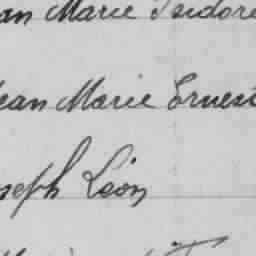 an Marie Isidore
Jean Marie Ernest
seph Léon